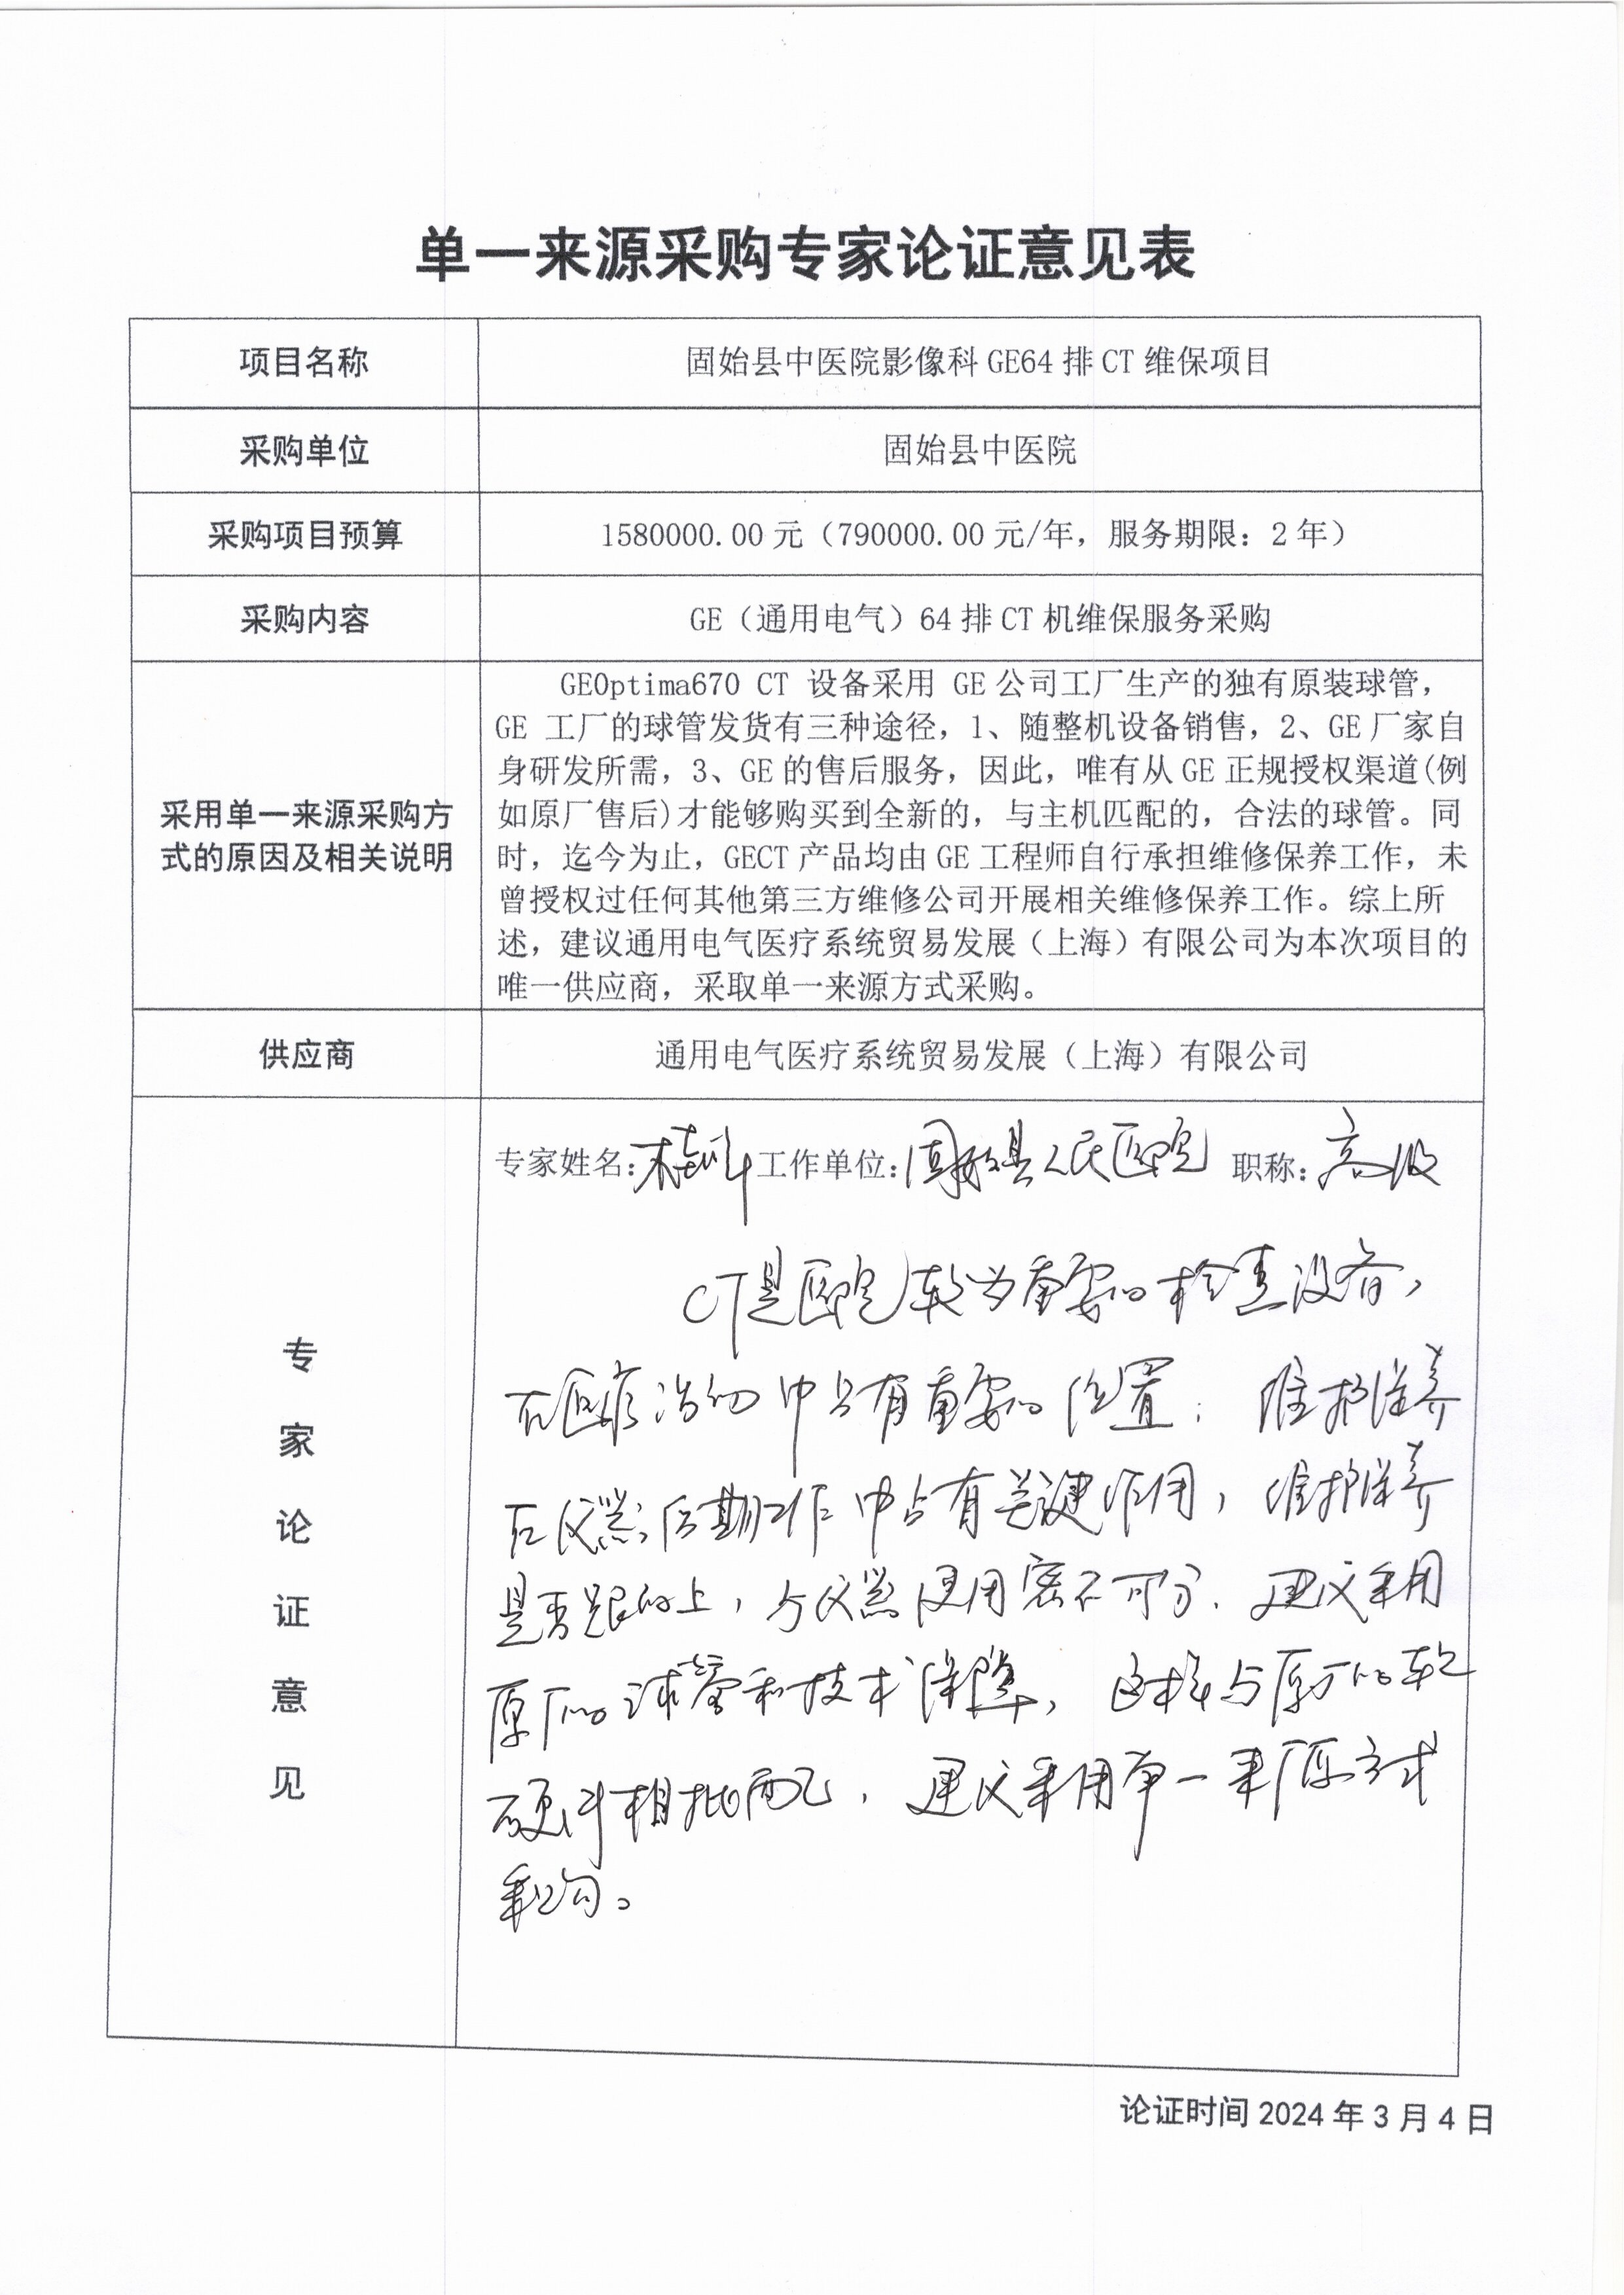 单一来源采购专家论证意见表
项目名称 固始县中医院影像科 GE64 排 CT 维保项目
采购单位 固始县中医院
采购项目预算 1580000.00 元（790000.00 元/年，服务期限：2 年）
采购内容 GE（通用电气）64 排 CT 机维保服务采购
采用单一来源采购方式的原因及相关说明
GEOptima670 CT 设备采用 GE 公司工厂生产的独有原装球管，
GE 工厂的球管发货有三种途径，1、随整机设备销售，2、GE 厂家自
身研发所需，3、GE 的售后服务，因此，唯有从 GE 正规授权渠道(例
如原厂售后)才能够购买到全新的，与主机匹配的，合法的球管。同
时，迄今为止，GECT 产品均由 GE 工程师自行承担维修保养工作，未
曾授权过任何其他第三方维修公司开展相关维修保养工作。综上所
述，建议通用电气医疗系统贸易发展（上海）有限公司为本次项目的
唯一供应商，采取单一来源方式采购。
供应商 通用电气医疗系统贸易发展（上海）有限公司
专家论证意见
专家姓名： 工作单位：固始县人民医院 职称：高级
CT是医院较为重要的检查设备，
在医疗活动中占有重要的位置；维护保养
在仪器后期工作中占有关键作用，维护保养
是否跟的上，与仪器使用密不可分．建议采用
原厂的球管和技术保障，这样与原厂的软
硬件相匹配，建议采用单一来源方式
采购。
论证时间 2024 年 3 月 4 日